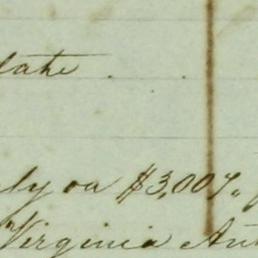 late
ly on $3,007,
Virginia